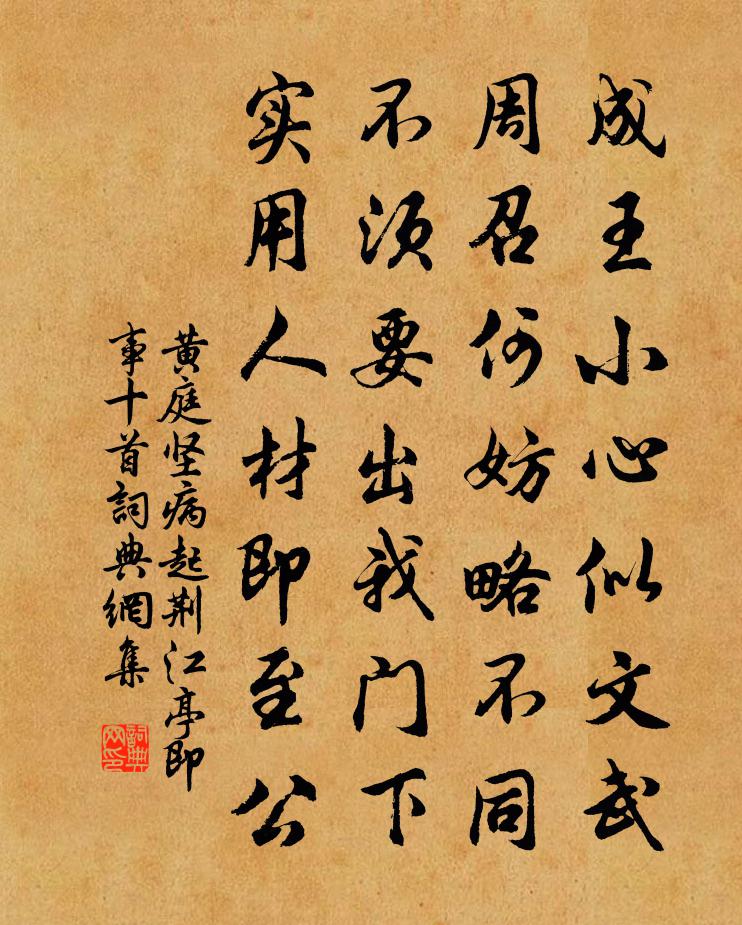 成王小心似文武
周召何妨略不同
不须要出我门下
实用人材即至公
黄庭坚病起荆江亭即
事十首詞典網集
詞典
网印